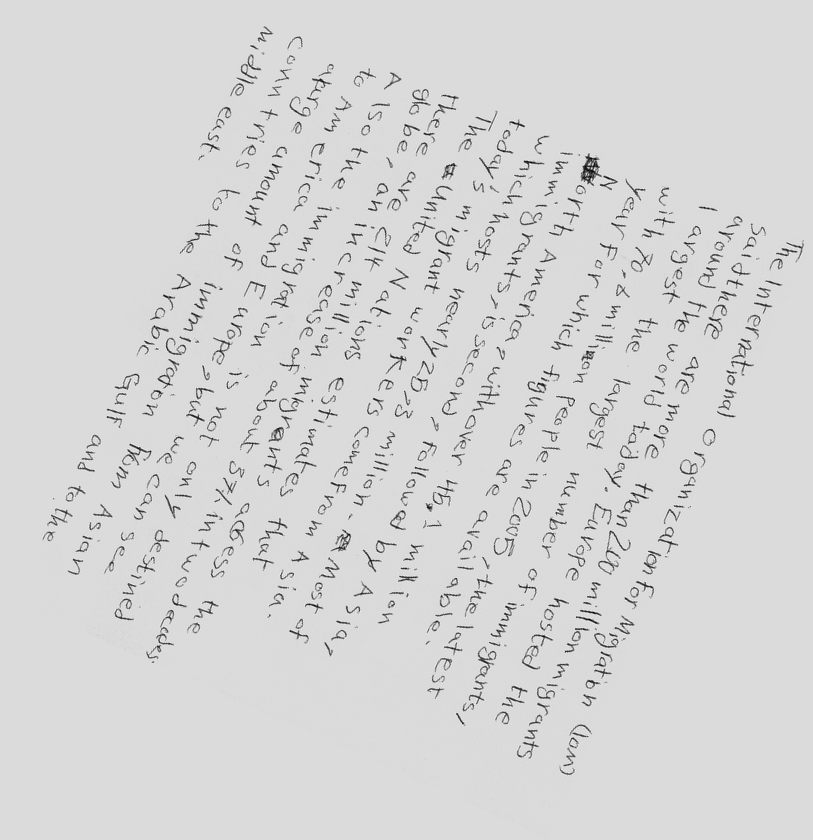 The International organization for Migration (Iom)
said there are more than 200 million migrants
around the world today. Europe hosted the
largest the largest number of immigrants,
with 70.6 million people in 2005, the latest
year for which figures are available.
North America, with over 45.1 million
immigrants, is second, followed by Asia,
which hosts nearly 25.3 million. Most of
today's migrant workers come from Asia.
The United Nations estimates that
there are 214 million migrants across the
globe, an increase of about 37% in two decades.
Also the immigration is not only destined
to America and Europe, but we can see
a large amount of immigration from Asian
countries to the Arabic Gulf and to the
middle east.